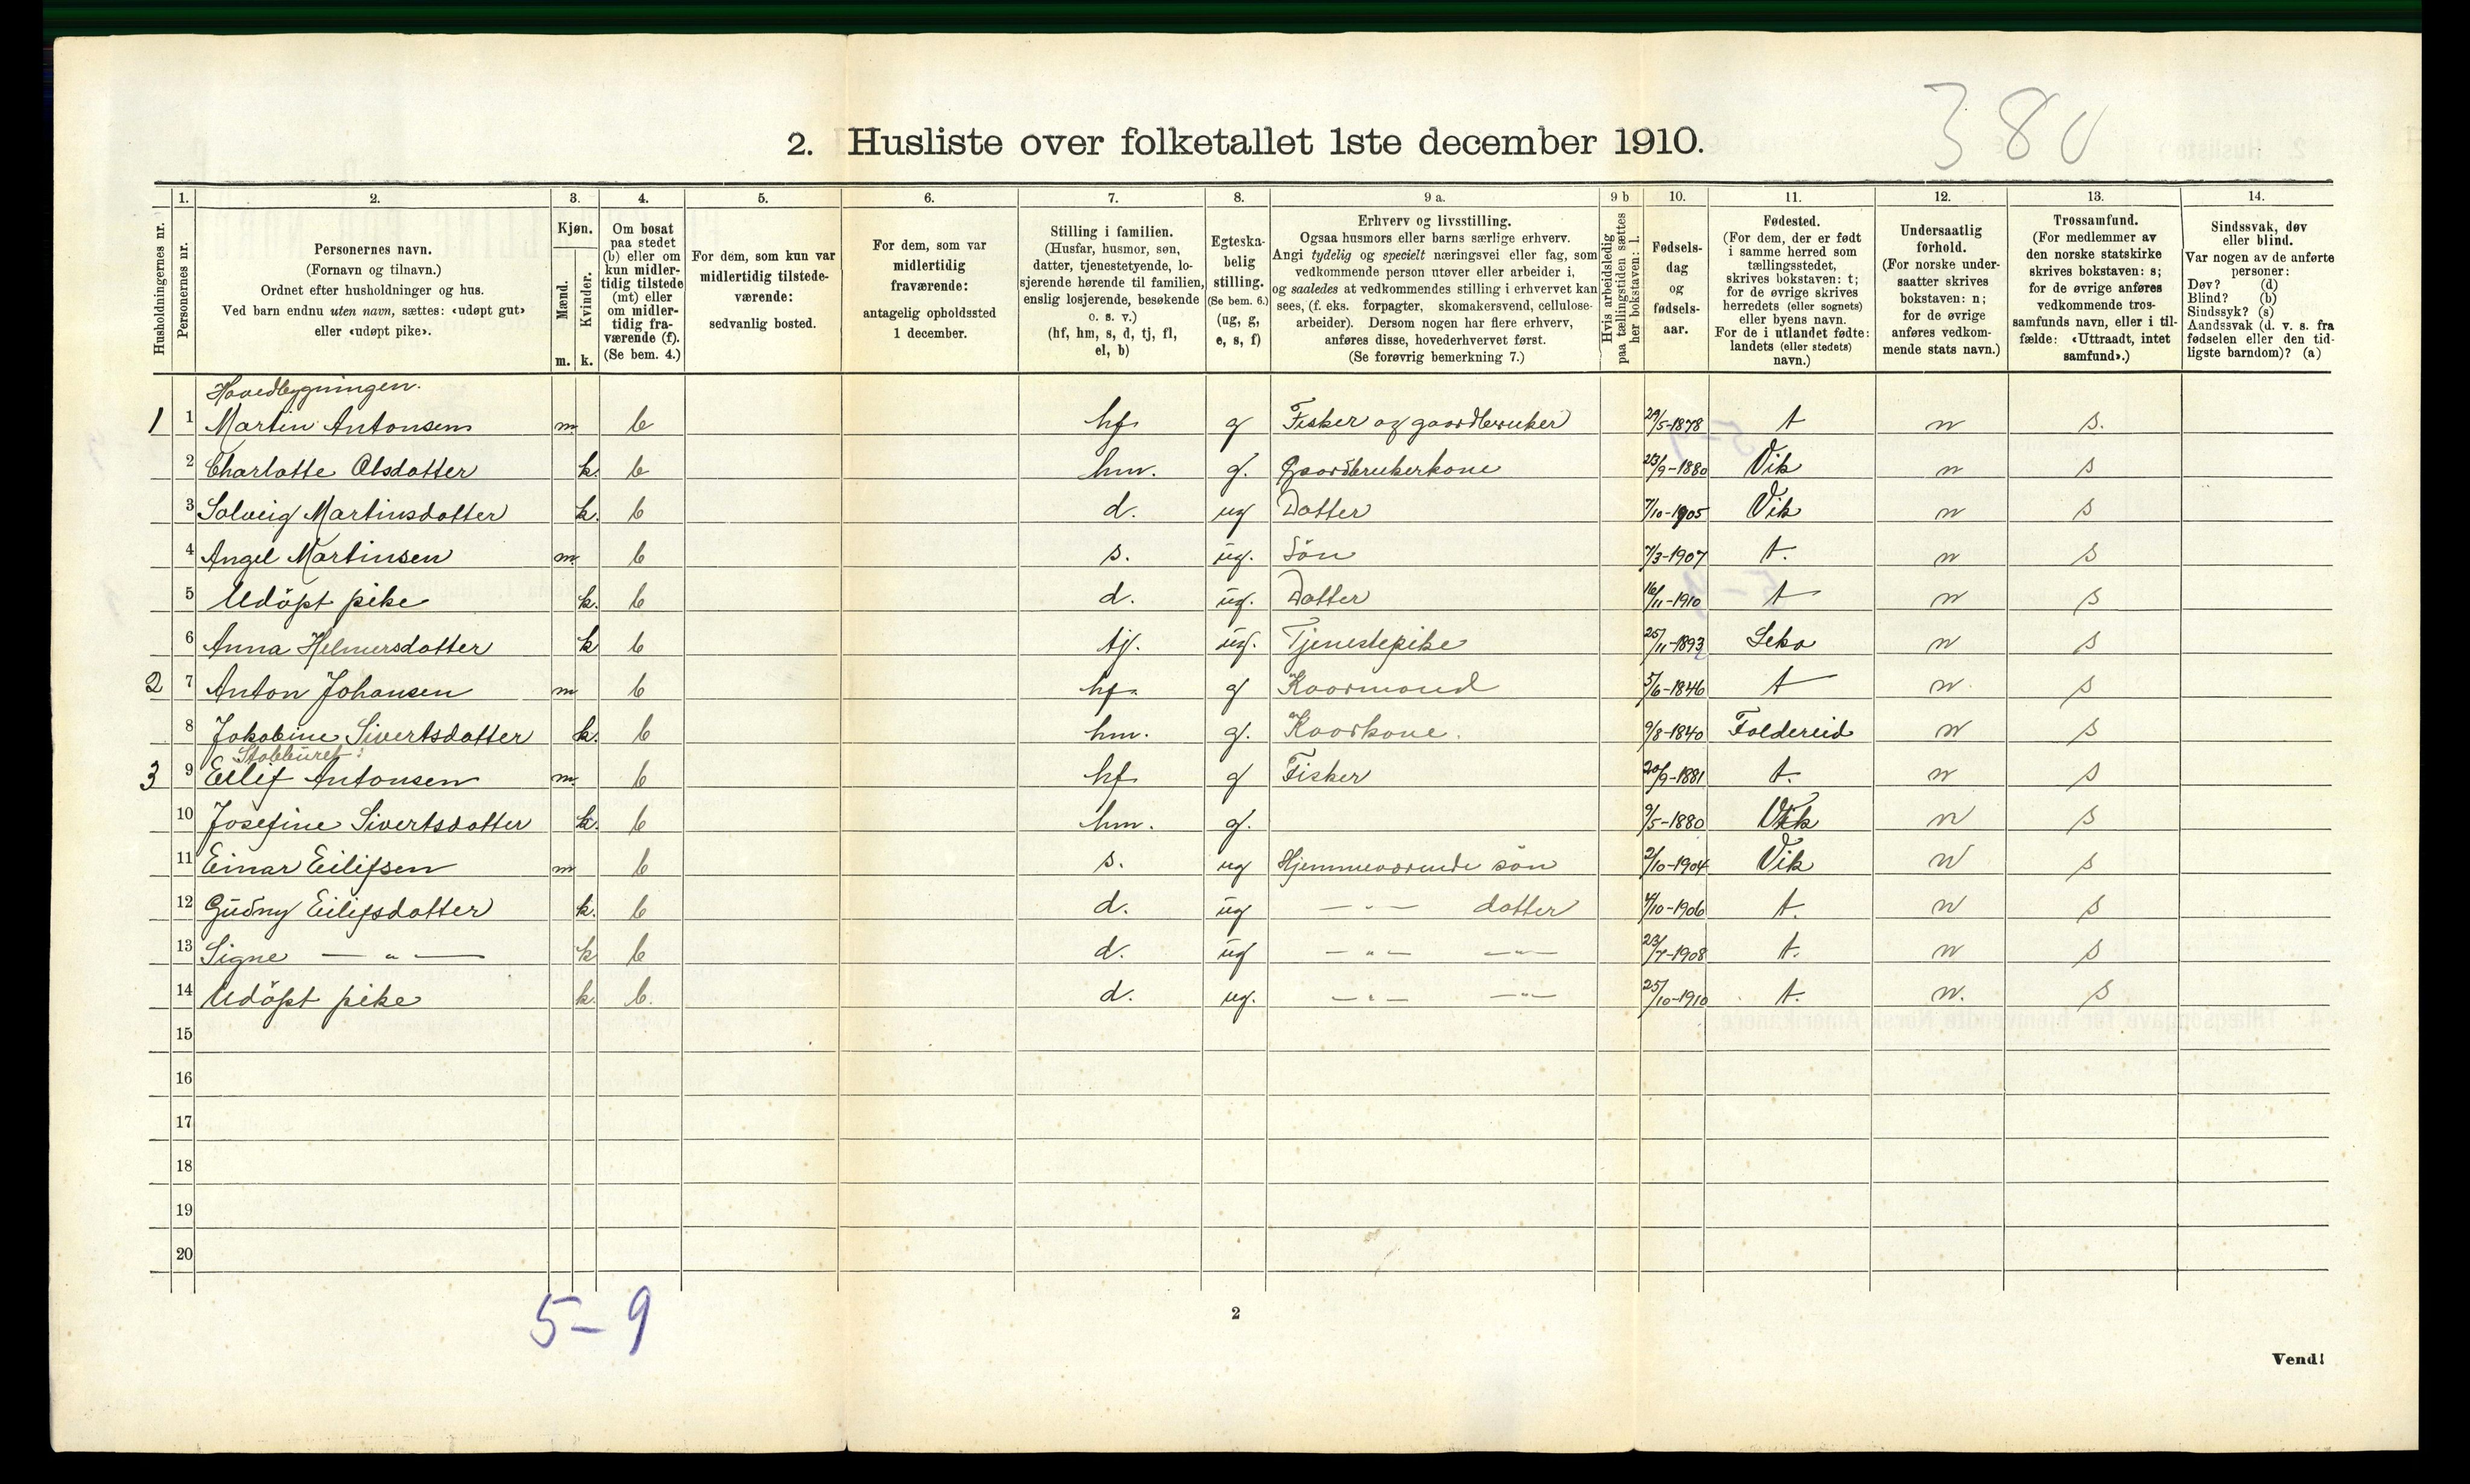 380
2. Husliste over folketallet 1ste december 1910.
Husholdningernes nr.
1. Personernes nr.
2. Personernes navn. (Fornavn og tilnavn.) Ordnet efter husholdninger og hus. Ved barn endnu uten navn, sættes: «udøpt gut» eller «udøpt pike».
3. Kjøn. Mænd. m. Kvinder. k.
4. Om bosat paa stedet (b) eller om kun midlertidig tilstede (mt) eller om midlertidig fraværende (f). (Se bem. 4.)
5. For dem, som kun var midlertidig tilstedeværende: sedvanlig bosted.
6. For dem, som var midlertidig fraværende: antagelig opholdssted 1 december.
7. Stilling i familien. (Husfar, husmor, søn, datter, tjenestetyende, losjerende hørende til familien, enslig losjerende, besøkende o. s. v.) (hf, hm, s, d, tj, fl, el, b)
8. Egteskabelig stilling. (Se bem. 6.) (ug, g, e, s, f)
9 a. Erhverv og livsstilling. Ogsaa husmors eller barns særlige erhverv. Angi tydelig og specielt næringsvei eller fag, som vedkommende person utøver eller arbeider i, og saaledes at vedkommendes stilling i erhvervet kan sees, (f. eks. forpagter, skomakersvend, cellulose-arbeider). Dersom nogen har flere erhverv, anføres disse, hovederhvervet først. (Se forøvrig bemerkning 7.)
9 b Hvis arbeidsledig paa tællingstiden sættes her bokstaven: l.
10. Fødselsdag og fødselsaar.
11. Fødested. (For dem, der er født i samme herred som tællingsstedet, skrives bokstaven: t; for de øvrige skrives herredets (eller sognets) eller byens navn. For de i utlandet fødte: landets (eller stedets) navn.)
12. Undersaatlig forhold. (For norske undersaatter skrives bokstaven: n; for de øvrige anføres vedkommende stats navn.)
13. Trossamfund. (For medlemmer av den norske statskirke skrives bokstaven: s; for de øvrige anføres vedkommende trossamfunds navn, eller i tilfælde: «Uttraadt, intet samfund».)
14. Sindssvak, døv eller blind. Var nogen av de anførte personer: Døv? (d) Blind? (b) Sindssyk? (s) Aandssvak (d. v. s. fra fødselen eller den tidligste barndom)? (a)
Hovedbygningen.
1 1 Martin Antonsen m b hf g Fisker og gaardbruker 29/5-1878 t n s.
2 Charlotte Olsdatter k. b hm. g. Gaardbrukerkone 23/9-1880 Vik n s
3 Solveig Martinsdatter k. b d. ug Datter 7/10-1905 Vik n s
4 Angel Martinsen m b s. ug. Sön 7/3-1907 t. n s
5 Udöpt pike k. b d. ug. Datter 16/11-1910 t n s
6 Anna Helmersdatter k b tj. ug. Tjenestepike 25/11-1893 Leka n s
2 7 Anton Johansen m b hf. g Kaarmand 5/6-1846 t n. s
8 Jakobine Sivertsdatter k. b hm. g. Kaarkone. 9/8-1840 Foldereid n s
Stabburet:
3 9 Eilif Antonsen m b hf g Fisker 20/9-1881 t. n s
10 Josefine Sivertsdatter k. b hm. g. 9/5-1880 Vik n s
11 Einar Eilifsen m b s. ug Hjemmeværende sön 2/10-1904 Vik n s
12 Gudny Eilifsdatter k. b d. ug — " — datter 4/10-1906 t. n s
13 Signe — " — k b d. ug — " — — " — 23/7-1908 t. n s
14 Udöpt pike k. b. d. ug. — " — — " — 25/10-1910 t. n. s
15
16
17
18
19
20
5-9
2
Vend!